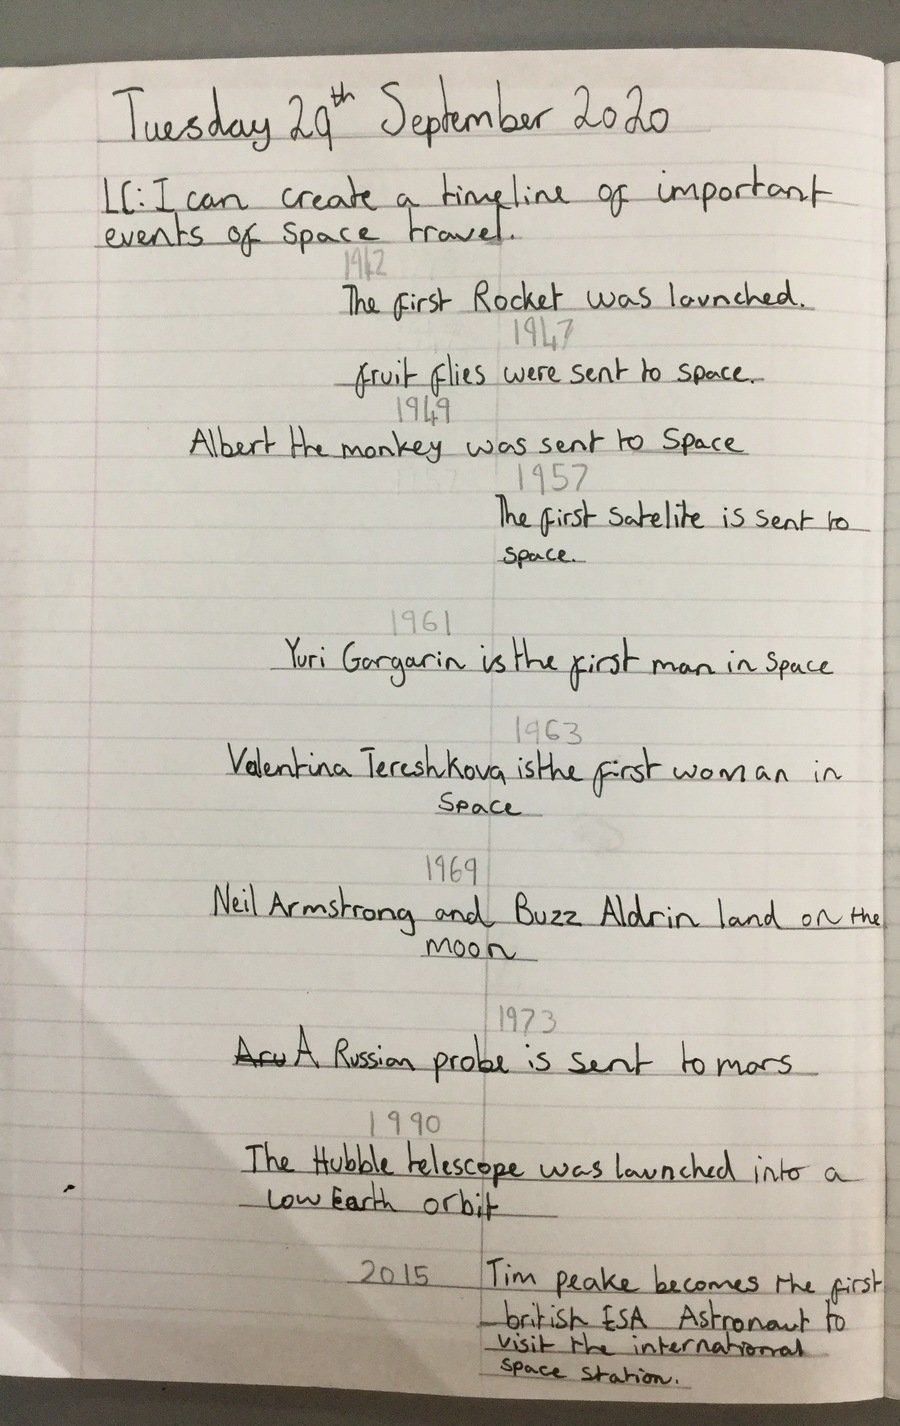 Tuesday 29th September 2020
LC: I can create a timeline of important
events of space travel.
1942
The first Rocket was launched.
1947
fruit flies were sent to space.
1949
Albert the monkey was sent to Space
1957
The first satelite is sent to
space.
1961
Yuri Gargarin is the first man in Space
1963
Valentina Tereshkova is the first woman in
Space
1969
Neil Armstrong and Buzz Aldrin land on the
moon
1973
Aru A Russian probe is sent to mars
1990
The Hubble telescope was launched into a
low Earth orbit
2015 Tim peake becomes the first
british ESA Astronaut to
visit the international
space station.